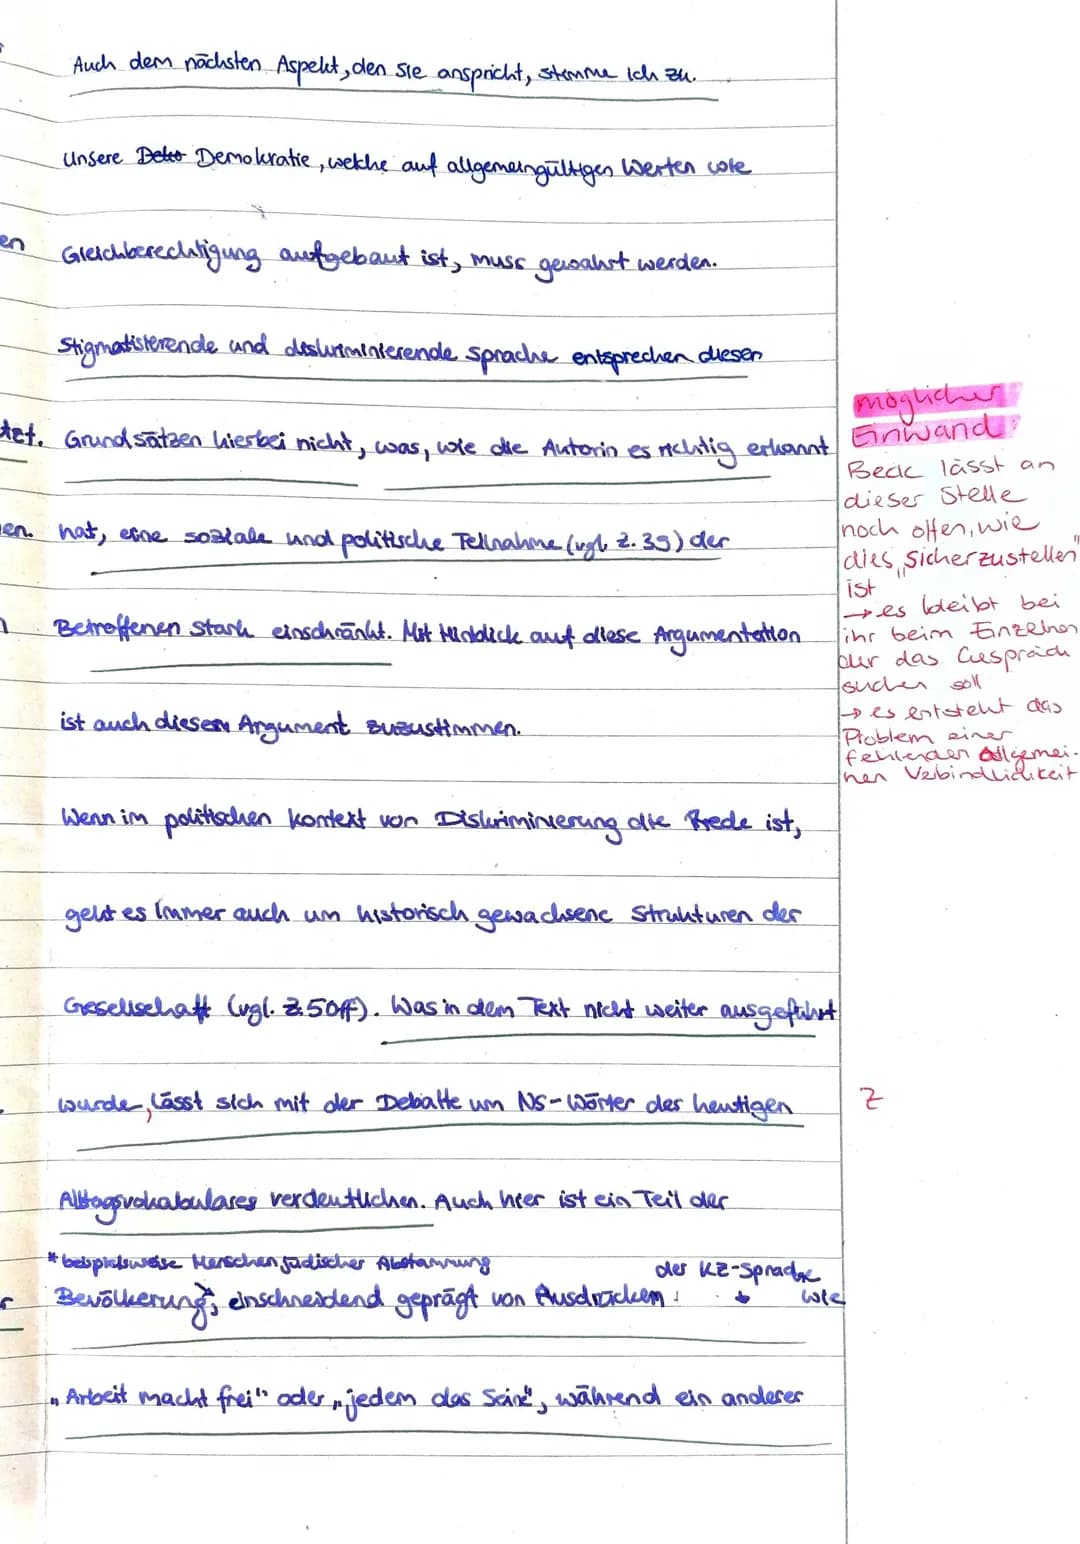 Auch dem nächsten Aspekt, den sie anspricht, stimme ich zu.
Unsere Demokratie, welche auf allgemeingültigen Werten wie
en
Gleichberechtigung aufgebaut ist, muss gewahrt werden.
Stigmatisierende und diskriminierende Sprache entsprechen diesen
Grundsätzen hierbei nicht, was, wie die Autorin es richtig erkannt
en.
hat, eine soziale und politische Teilnahme (vgl. Z. 39) der
Betroffenen stark einschränkt. Mit Hinblick auf diese Argumentation
ist auch diesem Argument zuzustimmen.
Wenn im politischen Kontext von Diskriminierung die Rede ist,
geht es immer auch um historisch gewachsene Strukturen der
Gesellschaft (vgl. Z. 50ff). Was in dem Text nicht weiter ausgeführt
wurde, lässt sich mit der Debatte um NS-Wörter des heutigen
Alltagsvokabulares verdeutlichen. Auch hier ist ein Teil der
* beispielsweise Menschen jüdischer Abstammung
der KZ-Sprache
Bevölkerung*, einschneidend geprägt von Ausdrücken wie
„Arbeit macht frei" oder „jedem das Seine", während ein anderer
möglicher
Einwand:
Beck lässt an
dieser Stelle
noch offen, wie
dies „sicherzustellen"
ist
→ es bleibt bei
ihr beim Einzelnen
der das Gespräch
suchen soll
→ es entsteht das
Problem einer
fehlenden allgemei-
nen Verbindlichkeit
Z